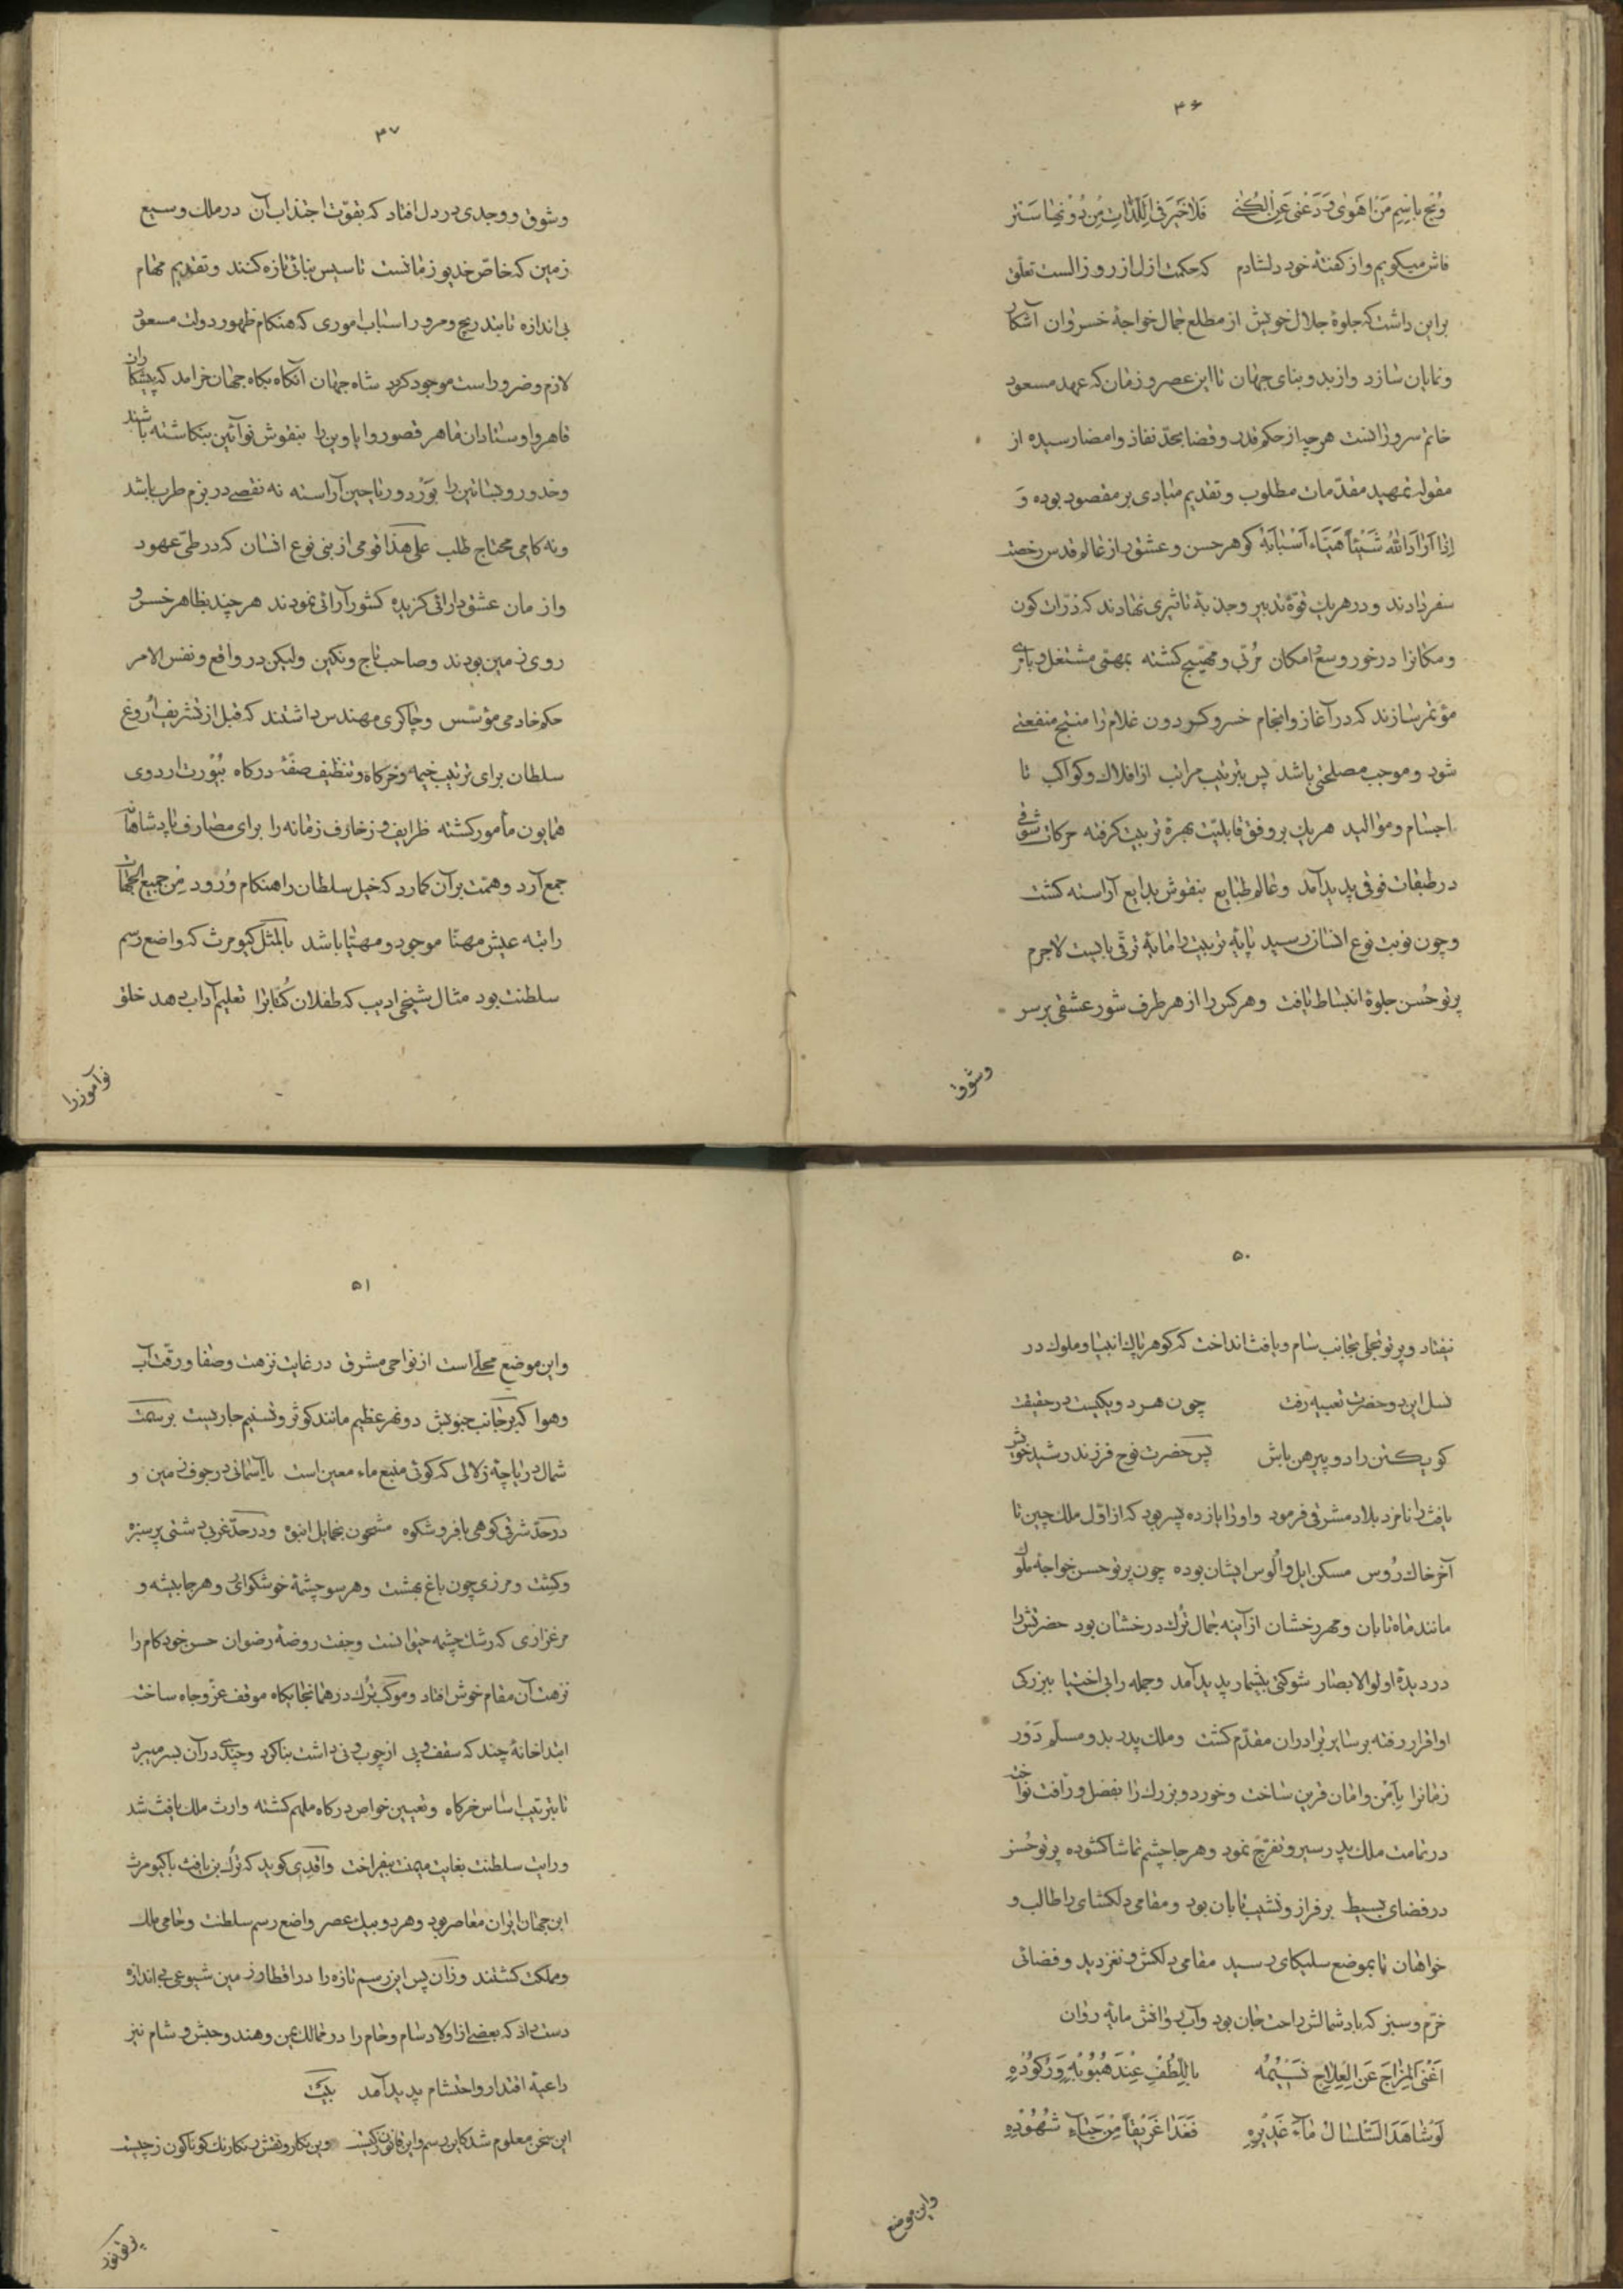 ۳۶
وَبُح بِاسمِ مَن اَهَوی وَدَعنی عَنِ الکُنی فَلا خَیرَ فی اللَّذاتِ مِن دُونِها سَتر
فاش میکویم واز کفتهٔ خود دلشادم که حکمت ازل از روز الست تعلق
براین داشت که جلوهٔ جلال خویش از مطلع جمال خواجهٔ خسروان آشکار
ونمایان سازد واز بدو بنای جهان تا این عصر وزمان که عهد مسعود
خاتم سروزانست هرچه از حکم قدر وقضا بحدّ نفاذ وامضا رسیده از
مقوله تمهید مقدّمات مطلوب وتقدیم مبادی بر مقصود بوده وَ
اِذا اَرادَ اللهُ شَیئاً هَیَّاءَ اَسبابَهُ کوهر حسن وعشق از عالم قدس رخصت
سفر دادند ودر هریك قوّهٔ تدبیر وجذبهٔ تاثیری نهادند که ذرّات کون
ومکانرا درخور وسع امکان مُربّی ومهیّج کشته بمهمّی مشتغل وبامری
مؤتمر سازند که در آغاز وانجام خسرو کردون غلام را منتج منفعتی
شود وموجب مصلحتی باشد پس بترتیب مراتب از افلاك وکواکب تا
اجسام وموالید هریك بر وفق قابلیّت بهرهٔ تربیت کرفته حرکات شوقی
در طبقات فوقی پدید آمد وعالم طبایع بنقوش بدایع آراسته کشت
وچون نوبت نوع انسان رسید پایهٔ تربیت را مایهٔ ترقی بایست لاجرم
پرتو حُسن جلوهٔ انبساط یافت وهرکس را از هر طرف شور عشقی بر سر
وشوق
۳۷
وشوق ووجدی در دل افتاد که بقوّت اجتذاب آن در ملك وسیع
زمین که خاصّ خدیو زمانست تاسیس بنائی تازه کنند وتقدیم مهام
بی اندازه تا بتدریج ومرور اسباب اموری که هنکام ظهور دولت مسعود
لازم وضرور است موجود کردد شاه جهان آنکاه بکاه جهان خرامد که پیشکاران
قاهر واوستادان ماهر قصور وایاوین را بنقوش نوآئین بنکاشته باشند
وخدور وبساتین را بوَرد وریاحین آراسته نه نقصی در بزم طرب باشد
ونه کامی محتاج طلب علی هذا قومی از بنی نوع انسان که در طیّ عهود
وازمان عشق دارائی کزیده کشورآرائی نمودند هرچند بظاهر خسرو
روی زمین بودند وصاحب تاج ونکین ولیکن در واقع ونفس الامر
حکم خادمی مؤسّس وچاکری مهندس داشتند که قبل از تشریف اُروغ
سلطان برای ترتیب خیمه وخرکاه وتنظیف صفّهٔ درکاه بیُورت اردوی
همایون مأمور کشته ظرایف وزخارف زمانه را برای مصارف پادشاهانه
جمع آرد وهمّت بر آن کمارد که خیل سلطان را هنکام وُرود مِن جمیع الجهات
راتبه عیش مهنّا موجود ومهیّا باشد بالمثل کیومرث که واضع رسم
سلطنت بود مثال شیخی ادیب که طفلان کُتّابرا تعلیم آداب دهد خلق
نوآموزرا
۵۰
نیفتاد وپرتو تجلی بجانب سام ویافث انداخت که کوهر پاك انبیا وملوك در
نسل این دو حضرت تعبیه رفت چون هر دو یکیست در حقیقت
کو یکتن را دو پیرهن باش پس حضرت نوح فرزند رشید خویش
یافث را نامزد بلاد مشرقی فرمود واورا یازده پسر بود که از اوّل ملك چین تا
آخر خاك رُوس مسکن ایل واُلوس ایشان بوده چون پرتو حسن خواجهٔ ملوك
مانند ماه تابان ومهر رخشان از آینهٔ جمال تُرك درخشان بود حضرتش را
در دیدهٔ اولوالابصار شوکتی بیشمار پدید آمد وجمله را بی اختیار ببزرکی
او اقرار رفته بر سایر برادران مقدّم کشت وملك پدر بدو مسلّم دَور
زمانرا بأمن وامان قرین ساخت وخورد وبزرك را بفضل ورأفت نواخت
در تمامت ملك پدر سیر وتفرّج نمود وهرجا چشم تماشا کشوده پرتو حُسن
در فضای بسیط بر فراز ونشیب تابان بود ومقامی دلکشای را طالب و
خواهان تا بموضع سلیکای رسید مقامی دلکش ونغز دید وفضائی
خرّم وسبز که باد شمالش راحت جان بود وآب روانش مایهٔ روان
اَغنَی المِزاجَ عَنِ العِلاجِ نَسیمُهُ بِاللُّطفِ عِندَ هُبُوبِهِ وَرُکُودِهِ
لَو شاهَدَ السَّلسالُ ماءَ غَدیرِهِ فَغَدا غَریقاً مِن حَیاءِ شُهُودِهِ
واین موضع
۵۱
واین موضع محلّی است از نواحی مشرق در غایت نزهت وصفا ورقّت آب
وهوا که بر جانب جنوبش دو نهر عظیم مانند کوثر وتسنیم جاریست بر سمت
شمال دریاچهٔ زلالی که کوئی منبع ماء معین است یا آسمانی در جوف زمین و
در حدّ شرقی کوهی بافر وشکوه مشحون بخمایل انبوه ودر حدّ غربی دشتی پر سبزه
وکشت ومرزی چون باغ بهشت وهر سو چشمهٔ خوشکواری وهرجا بیشه و
مرغزاری که رشك چشمهٔ حیوانست وجفت روضهٔ رضوان حسن خودکام را
نزهت آن مقام خوش افتاد وموکب تُرك در همانجایکاه موقف عزّ وجاه ساخت
ابتدا خانهٔ چند که سقف وپی از چوب ونی داشت بنا کرد وچندی در آن بسر میبرد
تا بترتیب اساس خرکاه وتعیین خواص درکاه ملهم کشته وارث ملك یافث شد
ورایت سلطنت بغایت میمنت بیفراخت واقدی کوید که تُرك بن یافث با کیومرث
این جهان ایران معاصر بود وهر دو بیك عصر واضع رسم سلطنت وحامی ملك
ومملکت کشتند وزان پس این رسم تازه را در اقطار زمین شیوعی بی اندازه
دست داد که بعضی از اولاد سام وحام را در ممالك یمن وهند وحبش وشام نیز
داعیهٔ اقتدار واحتشام پدید آمد بیت
این سخن معلوم شد کاین رسم واین قانون زکیست وین نکار ونقش رنکارنك کوناکون زچیست
پرتو نور